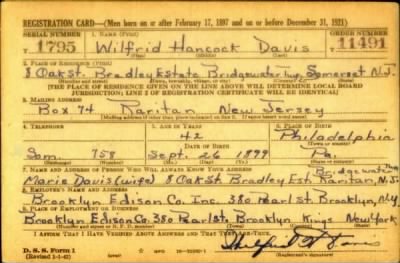 REGISTRATION CARD—(Men born on or after February 17, 1897 and on or before December 31, 1921)
SERIAL NUMBER 1. NAME (Print) ORDER NUMBER
T 1795 Wilfrid Hancock Davis T 11491
2. PLACE OF RESIDENCE (Print)
8 Oak St. Bradley Estate Bridgewater Twp. Somerset N.J.
[THE PLACE OF RESIDENCE GIVEN ON THE LINE ABOVE WILL DETERMINE LOCAL BOARD
JURISDICTION; LINE 2 OF REGISTRATION CERTIFICATE WILL BE IDENTICAL]
3. MAILING ADDRESS
Box 74 Raritan New Jersey
[Mailing address if other than place indicated on line 2. If same insert word same]
4. TELEPHONE 5. AGE IN YEARS 6. PLACE OF BIRTH
42 Philadelphia
DATE OF BIRTH
Som. 758 Sept. 26 1899 Pa.
7. NAME AND ADDRESS OF PERSON WHO WILL ALWAYS KNOW YOUR ADDRESS Bridgewater
Marie Davis (wife) 8 Oak St Bradley Est. Raritan, N.J.
8. EMPLOYER'S NAME AND ADDRESS
Brooklyn Edison Co. Inc. 380 Pearl St. Brooklyn, N.Y.
9. PLACE OF EMPLOYMENT OR BUSINESS
Brooklyn Edison Co. 380 Pearl St. Brooklyn Kings New York
I AFFIRM THAT I HAVE VERIFIED ABOVE ANSWERS AND THAT THEY ARE TRUE.
D. S. S. Form 1
(Revised 1-1-42)